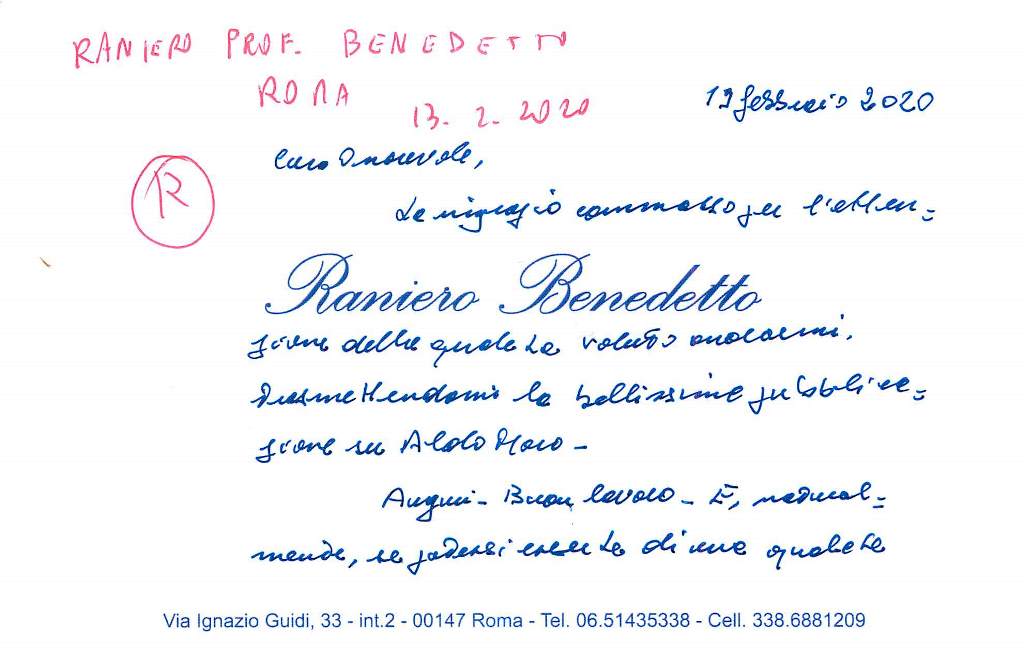 RANIERO PROF. BENEDETTO
ROMA
13. 2. 2020
19 febbraio 2020
Caro Onorevole,
R
La ringrazio commosso per l'atten=
Raniero Benedetto
zione della quale ha voluto onorarmi,
trasmettendomi la bellissima pubblica=
zione su Aldo Moro -
Auguri - Buon lavoro - E, natural=
mente, se potessi esserLe di una qualche
Via Ignazio Guidi, 33 - int.2 - 00147 Roma - Tel. 06.51435338 - Cell. 338.6881209